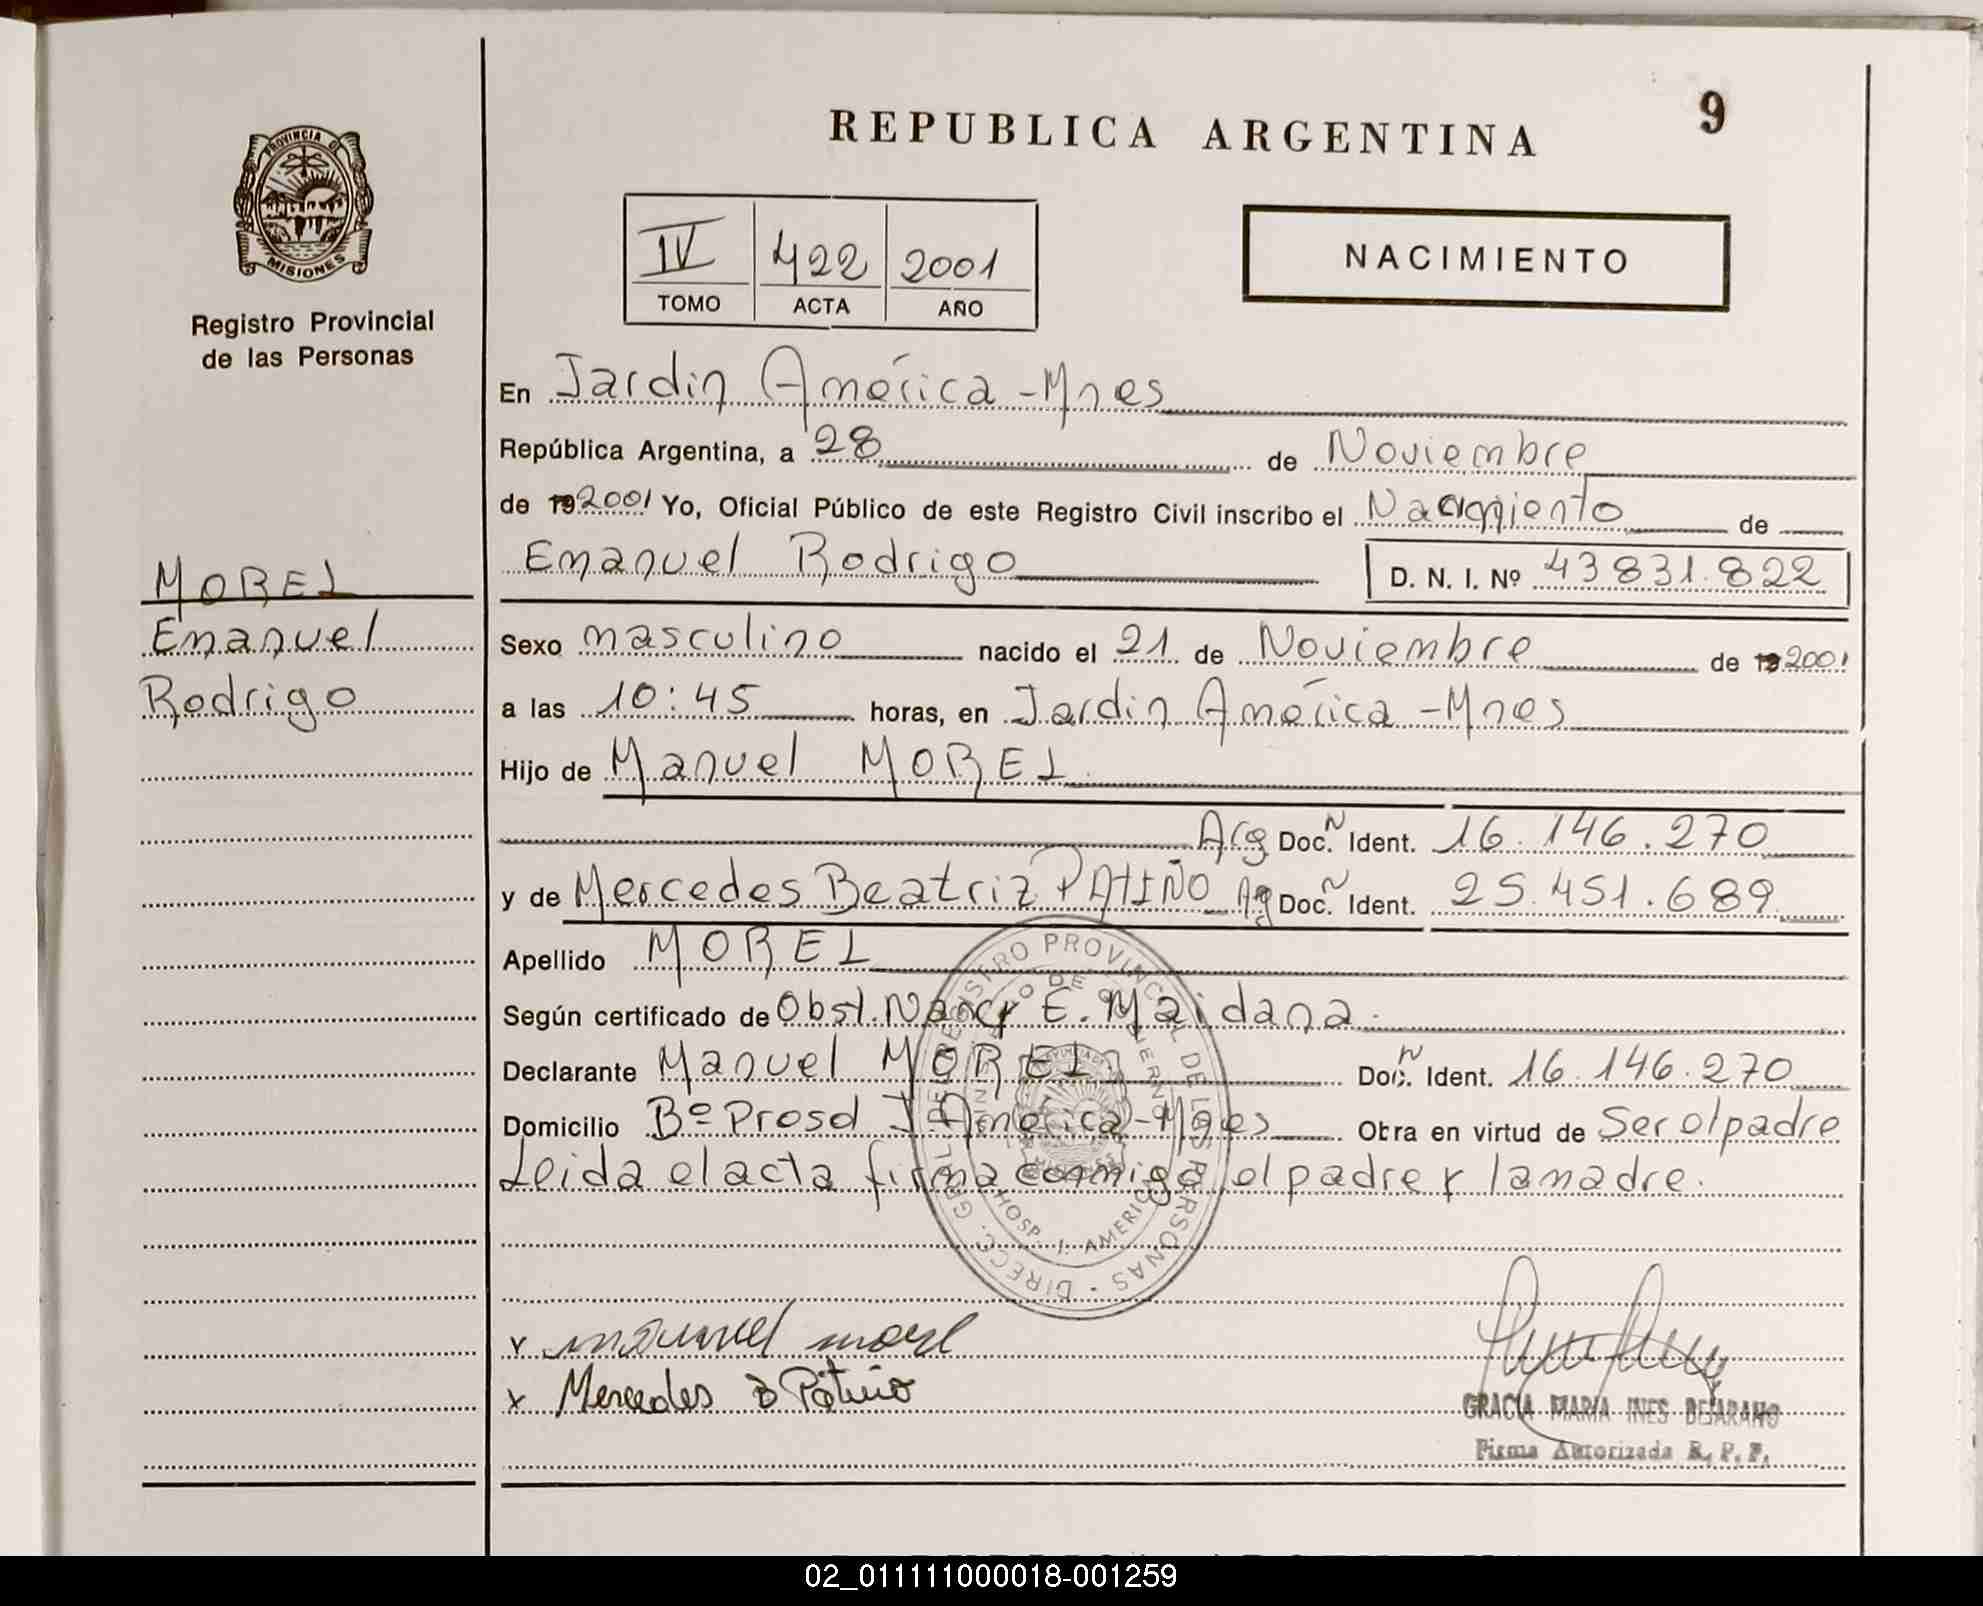 REPUBLICA ARGENTINA
9
PROVINCIA DE
MISIONES
Registro Provincial
de las Personas
IV 422 2001
TOMO ACTA AÑO
NACIMIENTO
En Jardin América - Mnes
República Argentina, a 28 de Noviembre
de 19 2001 Yo, Oficial Público de este Registro Civil inscribo el Nacimiento de
Emanuel Rodrigo D. N. I. Nº 43831.822
MOREL
Emanuel
Rodrigo
Sexo masculino nacido el 21 de Noviembre de 19 2001
a las 10:45 horas, en Jardin América - Mnes
Hijo de Manuel MOREL
Arg Doc. N Ident. 16.146.270
y de Mercedes Beatriz PATIÑO Arg Doc. N Ident. 25.451.689
Apellido MOREL
Según certificado de Obst. Nancy E. Maidana.
Declarante Manuel MOREL Doc. N Ident. 16.146.270
Domicilio Bº Prosol J América - Mnes Obra en virtud de Ser el padre
Leida el acta firma conmigo el padre y la madre.
DIRECC. GRAL. DEL REGISTRO PROVINCIAL DE LAS PERSONAS
MINISTERIO DE GOBIERNO
HOSP. J. AMERICA
x manuel morel
x Mercedes B Patiño
GRACIA MARIA INES BEJARANO
Firma Autorizada R. P. P.
02_011111000018-001259